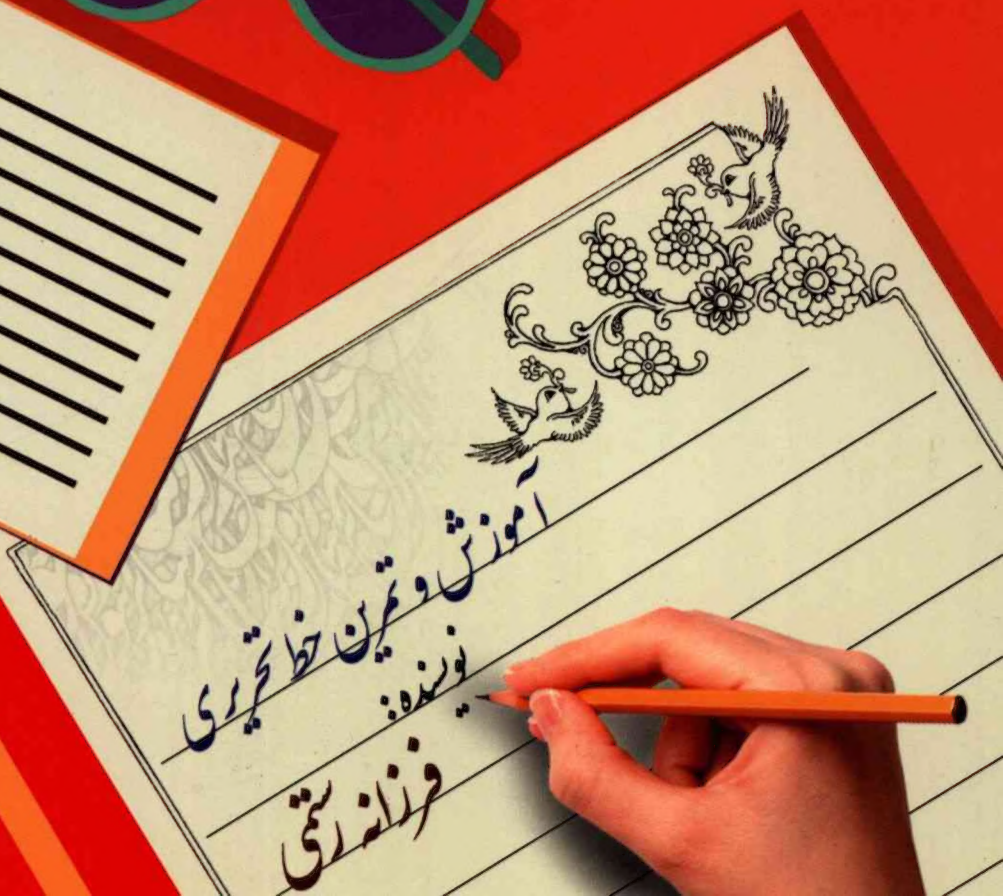 آموزش و تمرین خط تحریری
نویسنده:
فرزانه رستمی